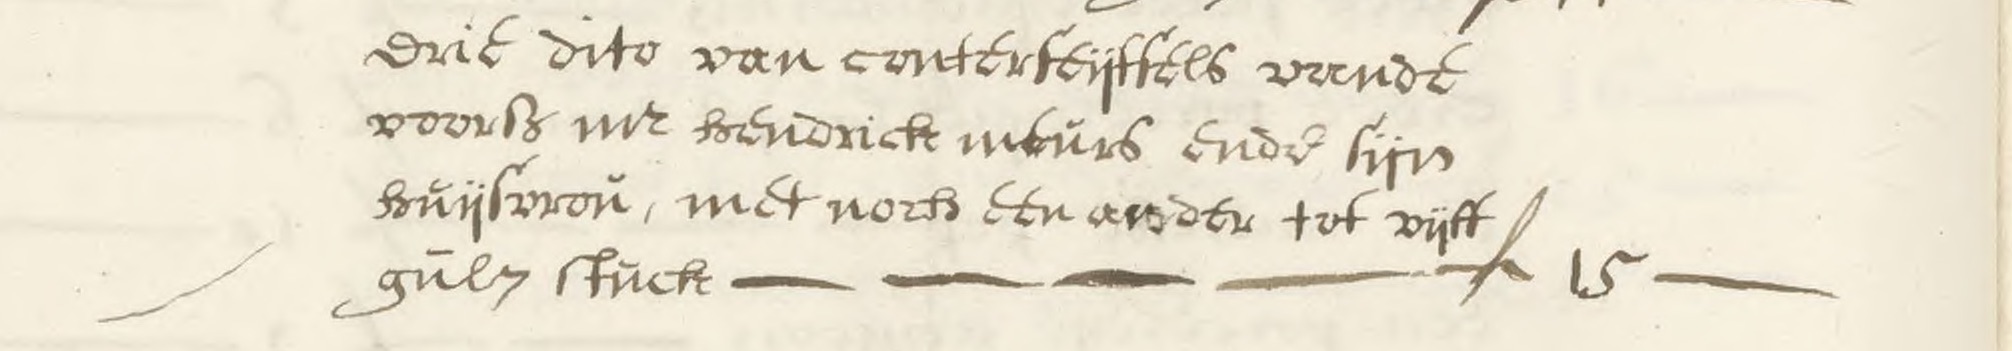 drie dito van conterfeijtsels vande
voorsz mr hendrick meurs ende sijn
huijsvrou, met noch een ander tot vijff
guld stuck — — — — f 15 —